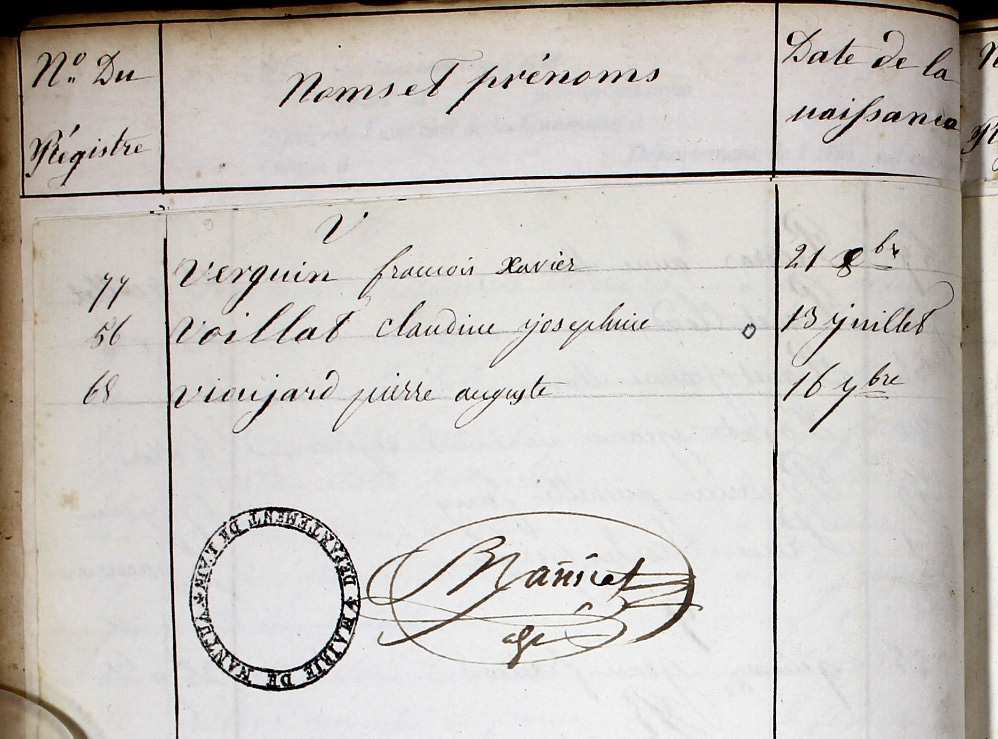 No. Du Régistre
Noms et prénoms
Date de la naissance
V
77 Verguin francois Xavier 21 8bre
56 Voillat claudine josephine 13 juillet
68 vioujard pierre auguste 16 7bre
MAIRIE DE NANTUA * DÉPARTEMENT DE L'AIN *